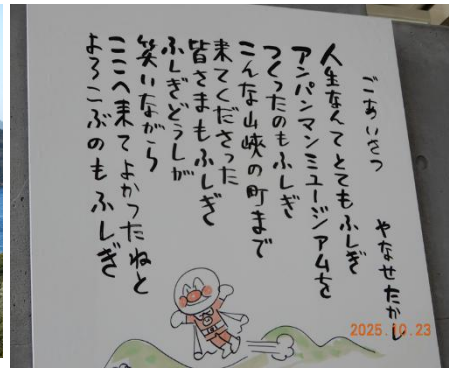 ごあいさつ
やなせたかし
人生なんてとてもふしぎ
アンパンマンミュージアムを
つくったのもふしぎ
こんな山峡の町まで
来てくださった
皆さまもふしぎ
ふしぎどうしが
笑いながら
ここへ来てよかったねと
よろこぶのもふしぎ
2025.10.23